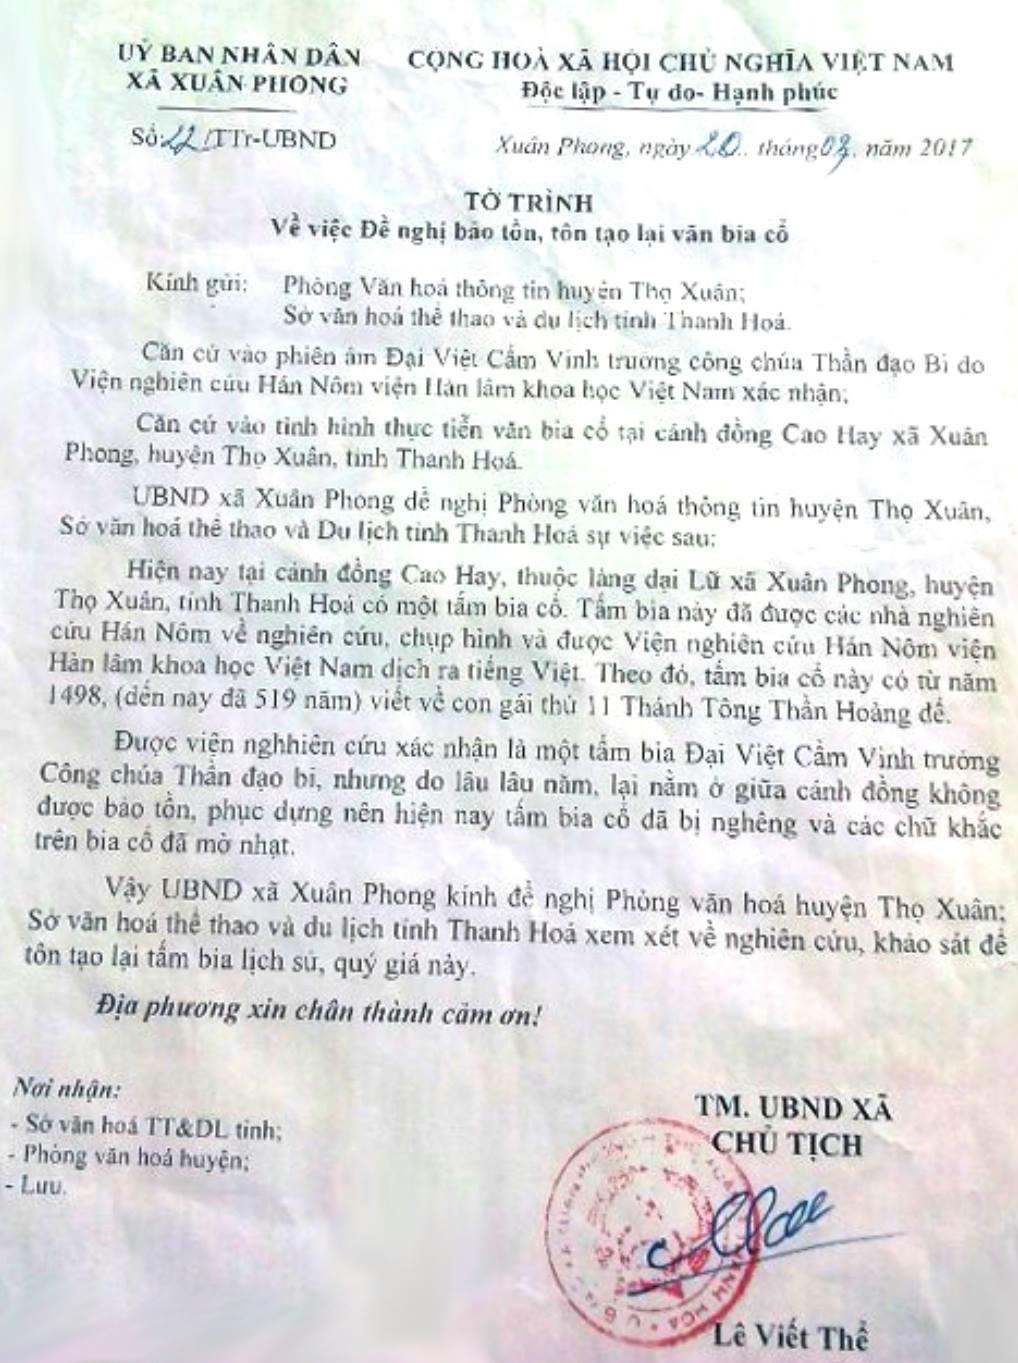 UỶ BAN NHÂN DÂN
XÃ XUÂN PHONG
CỘNG HOÀ XÃ HỘI CHỦ NGHĨA VIỆT NAM
Độc lập - Tự do- Hạnh phúc
Số:22/TTr-UBND
Xuân Phong, ngày 20.. tháng 03. năm 2017
TỜ TRÌNH
Về việc Đề nghị bảo tồn, tôn tạo lại văn bia cổ
Kính gửi: Phòng Văn hoá thông tin huyện Thọ Xuân;
Sở văn hoá thể thao và du lịch tỉnh Thanh Hoá.
Căn cứ vào phiên âm Đại Việt Cẩm Vinh trưởng công chúa Thần đạo Bi do
Viện nghiên cứu Hán Nôm viện Hàn lâm khoa học Việt Nam xác nhận;
Căn cứ vào tình hình thực tiễn văn bia cổ tại cánh đồng Cao Hay xã Xuân
Phong, huyện Thọ Xuân, tỉnh Thanh Hoá.
UBND xã Xuân Phong đề nghị Phòng văn hoá thông tin huyện Thọ Xuân,
Sở văn hoá thể thao và Du lịch tỉnh Thanh Hoá sự việc sau:
Hiện nay tại cánh đồng Cao Hay, thuộc làng đại Lữ xã Xuân Phong, huyện
Thọ Xuân, tỉnh Thanh Hoá có một tấm bia cổ. Tấm bia này đã được các nhà nghiên
cứu Hán Nôm về nghiên cứu, chụp hình và được Viện nghiên cứu Hán Nôm viện
Hàn lâm khoa học Việt Nam dịch ra tiếng Việt. Theo đó, tấm bia cổ này có từ năm
1498, (đến nay đã 519 năm) viết về con gái thứ 11 Thánh Tông Thần Hoàng đế.
Được viện nghhiên cứu xác nhận là một tấm bia Đại Việt Cẩm Vinh trưởng
Công chúa Thần đạo bi, nhưng do lâu lâu năm, lại nằm ở giữa cánh đồng không
được bảo tồn, phục dựng nên hiện nay tấm bia cổ đã bị nghêng và các chữ khắc
trên bia cổ đã mờ nhạt.
Vậy UBND xã Xuân Phong kính đề nghị Phòng văn hoá huyện Thọ Xuân;
Sở văn hoá thể thao và du lịch tỉnh Thanh Hoá xem xét về nghiên cứu, khảo sát để
tôn tạo lại tấm bia lịch sử, quý giá này.
Địa phương xin chân thành cảm ơn!
Nơi nhận:
- Sở văn hoá TT&DL tỉnh;
- Phòng văn hoá huyện;
- Lưu.
TM. UBND XÃ
CHỦ TỊCH
Lê Viết Thể